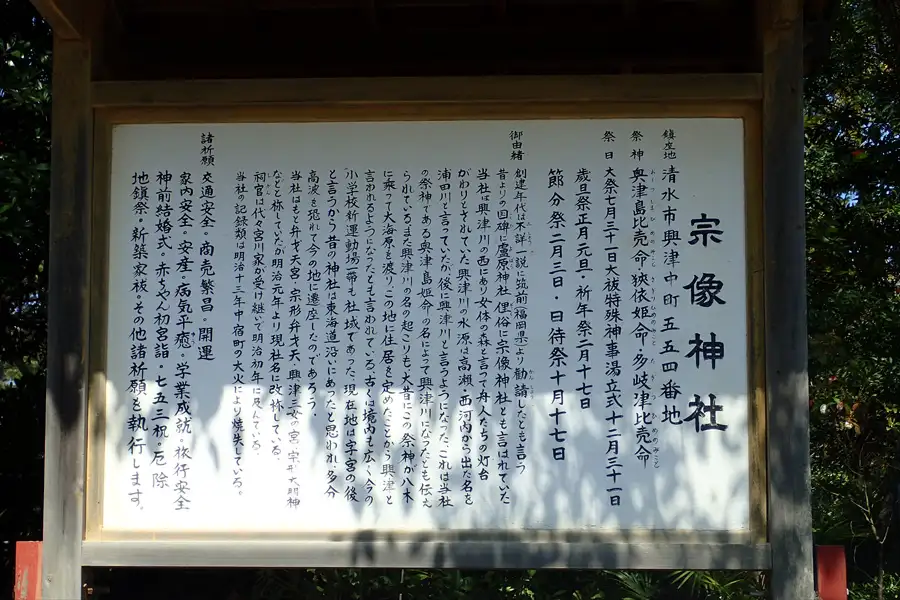 宗像神社
鎮座地 清水市興津中町五五四番地
祭神 奥津島比売命・狹依姫命・多岐津比売命
祭日 大祭七月三十一日大祓特殊神事湯立式十二月三十一日
歳旦祭正月元旦・祈年祭二月十七日
節分祭二月三日・日待祭十月十七日
御由緒 創建年代は不詳一説に筑前(福岡県)より勧請したとも言う
昔よりの四碑に盧原神社(俚俗)宗像神社とも言はれていた
当社は興津川の西にあり女体の森と言って舟人たちの灯台
がわりとされていた興津川の水源は高瀬、西河内から出た名を
浦田川と言っていたが後に興津川と言うようになった。これは当社
の祭神である奥津島姫命の名によって興津川になったとも伝え
られているまた興津川の名の起こりも大昔にこの祭神が八木
に乗って大海原を渡り、この地に住居を定めたことから興津と
言われるようになったとも言われている。古くは境内も広く、今の
小学校新運動場一帯も社域であった。現在地は字宮の後
と言うから昔の神社は東海道沿いにあったと思われ、多分
高波を恐れて今の地に遷座したのであろう。
当社はもと弁才天宮・宗形弁才天・興津三女の宮・宇形大明神
などと称していたが明治元年より現社名に改称している。
祠官は代々宮川家が受け継いで明治初年に及んでいる。
当社の記録類は明治十三年中宿町の大火により焼失している。
諸祈願 交通安全。商売繁昌。開運
家内安全。安産。病気平癒。学業成就。旅行安全
神前結婚式。赤ちゃん初宮詣。七五三祝。厄除
地鎮祭。新築家祓。その他諸祈願を執行します。